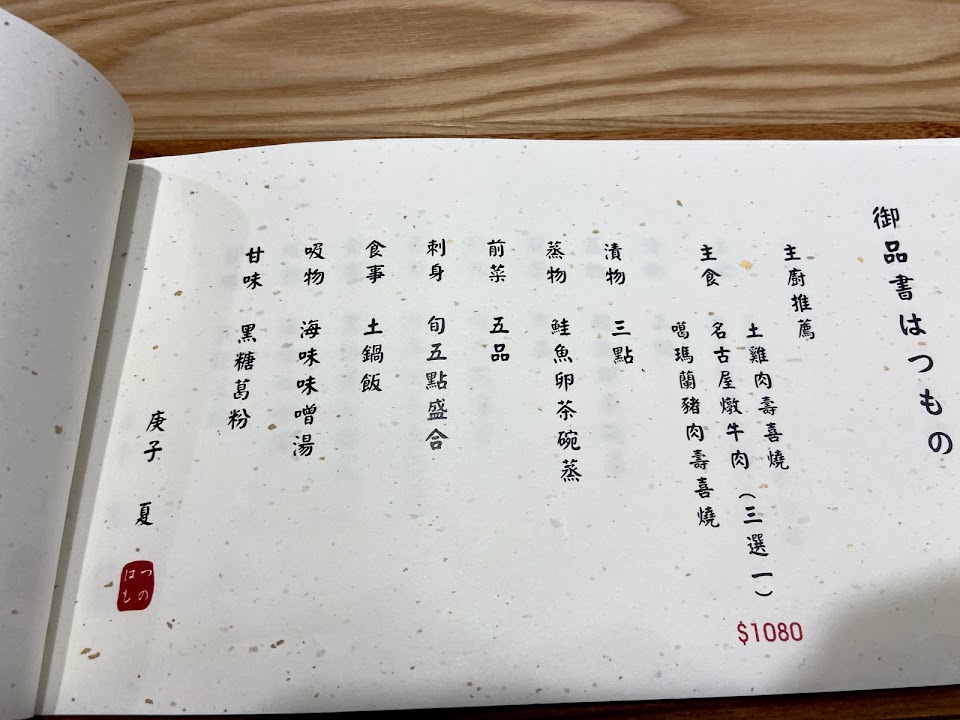 御品書はつもの
主廚推薦
主食
土雞肉壽喜燒
名古屋燉牛肉（三選一）
噶瑪蘭豬肉壽喜燒
$1080
漬物 三點
蒸物 鮭魚卵茶碗蒸
前菜 五品
刺身 旬五點盛合
食事 土鍋飯
吸物 海味味噌湯
甘味 黑糖葛粉
庚子 夏
つの
はも